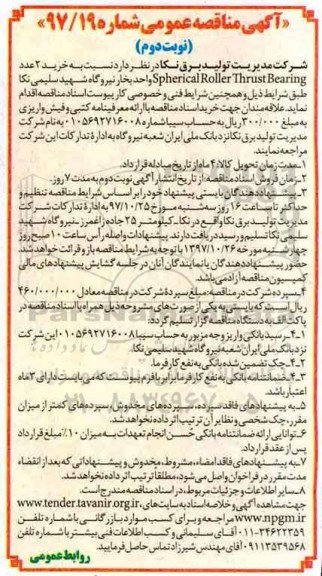 «آگهی مناقصه عمومی شماره ۹۷/۱۹»
(نوبت دوم)
شرکت مدیریت تولید برق نکا در نظر دارد نسبت به خرید ۲ عدد
Spherical Roller Thrust Bearing واحد بخار نیروگاه شهید سلیمی نکا
طبق شرایط ذیل و همچنین شرایط فنی و خصوصی کار پیوست اسناد مناقصه اقدام
نماید. علاقه‌مندان جهت خرید اسناد مناقصه با ارائه معرفینامه کتبی و فیش واریزی
به مبلغ ۳۰۰/۰۰۰ ریال به حساب سیبا شماره ۰۱۰۵۶۹۲۷۱۶۰۰۸ به نام شرکت
مدیریت تولید برق نکا نزد بانک ملی ایران شعبه نیروگاه به اداره تدارکات این شرکت
مراجعه نمایند.
۱ـ مدت زمان تحویل کالا ۴ ماه از تاریخ مبادله قرارداد.
۲ـ زمان فروش اسناد مناقصه: از تاریخ انتشار آگهی نوبت دوم به مدت ۷ روز.
۳ـ پیشنهاددهندگان بایستی پیشنهاد خود را بر اساس شرایط مناقصه تنظیم و
حداکثر تا ساعت ۱۶ روز سه‌شنبه مورخ ۹۷/۱۰/۲۵ به اداره تدارکات شرکت
مدیریت تولید برق نکا واقع در نکا ـ کیلومتر ۲۵ جاده زاغمرز ـ نیروگاه شهید
سلیمی نکا تسلیم و رسید دریافت دارند. پیشنهادات واصله رأس ساعت ۱۰ صبح روز
چهارشنبه مورخه ۱۳۹۷/۱۰/۲۶ با توجه به شرایط مناقصه باز و قرائت خواهد شد
حضور پیشنهاددهندگان یا نمایندگان آنان در جلسه گشایش پیشنهادهای مالی
کمیسیون مناقصه آزاد می‌باشد.
۴ـ سپرده شرکت در مناقصه: مبلغ سپرده شرکت در مناقصه معادل ۴۶۰/۰۰۰/۰۰۰
ریال است که بایستی به یکی از صورت‌های مشروحه ذیل همراه با اسناد مناقصه در
پاکت الف به دستگاه مناقصه گزار تسلیم گردد.
۴-۱ـ رسید بانکی واریز وجه مزبور به حساب سیبا ۰۱۰۵۶۹۲۷۱۶۰۰۸ این شرکت
نزد بانک ملی ایران شعبه نیروگاه شهید سلیمی نکا.
۴-۲ـ چک تضمین شده بانکی به نفع کارفرما.
۴-۳ـ ضمانتنامه بانکی به نفع کارفرما برابر با فرم پیوست که می‌بایست دارای ۳ ماه
اعتبار باشد.
۵ـ به پیشنهادهای فاقد سپرده، سپرده‌های مخدوش، سپرده‌های کمتر از میزان
مقرر، چک شخصی و نظایر آن ترتیب اثر داده نخواهد شد.
۶ـ توانایی ارائه ضمانتنامه بانکی حسن انجام تعهدات به میزان ۱۰٪ مبلغ قرارداد
پس از عقد قرارداد.
۷ـ به پیشنهادهای فاقد امضاء، مشروط، مخدوش و پیشنهاداتی که بعد از انقضاء
مدت مقرر در فراخوان واصل می‌شود، مطلقا ترتیب اثر داده نخواهد شد.
۸ـ سایر اطلاعات و جزئیات مربوط، در اسناد مناقصه مندرج است.
جهت مشاهده آگهی و خلاصه اسناد به سایت‌های www.tender.tavanir.org.ir،
www.npgm.ir مراجعه و برای کسب موارد بازرگانی با شماره تلفن
۰۱۱-۳۴۶۲۲۳۵۹ آقای سلیمانی و کسب اطلاعات فنی بیشتر با شماره تلفن
۰۹۱۱۳۵۳۹۵۶۸ آقای مهندس شیرزاد تماس حاصل فرمایید.
روابط عمومی